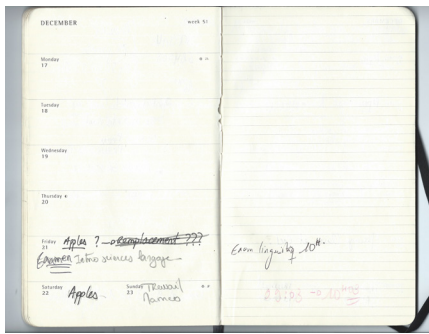 DECEMBER week 51
Monday
17
Tuesday
18
Wednesday
19
Thursday
20
Friday Apples ? remplacement ???
21 Examen Intro sciences langage
Saturday
22 Apples
Sunday Travail
23
Exam linguistiq 10H